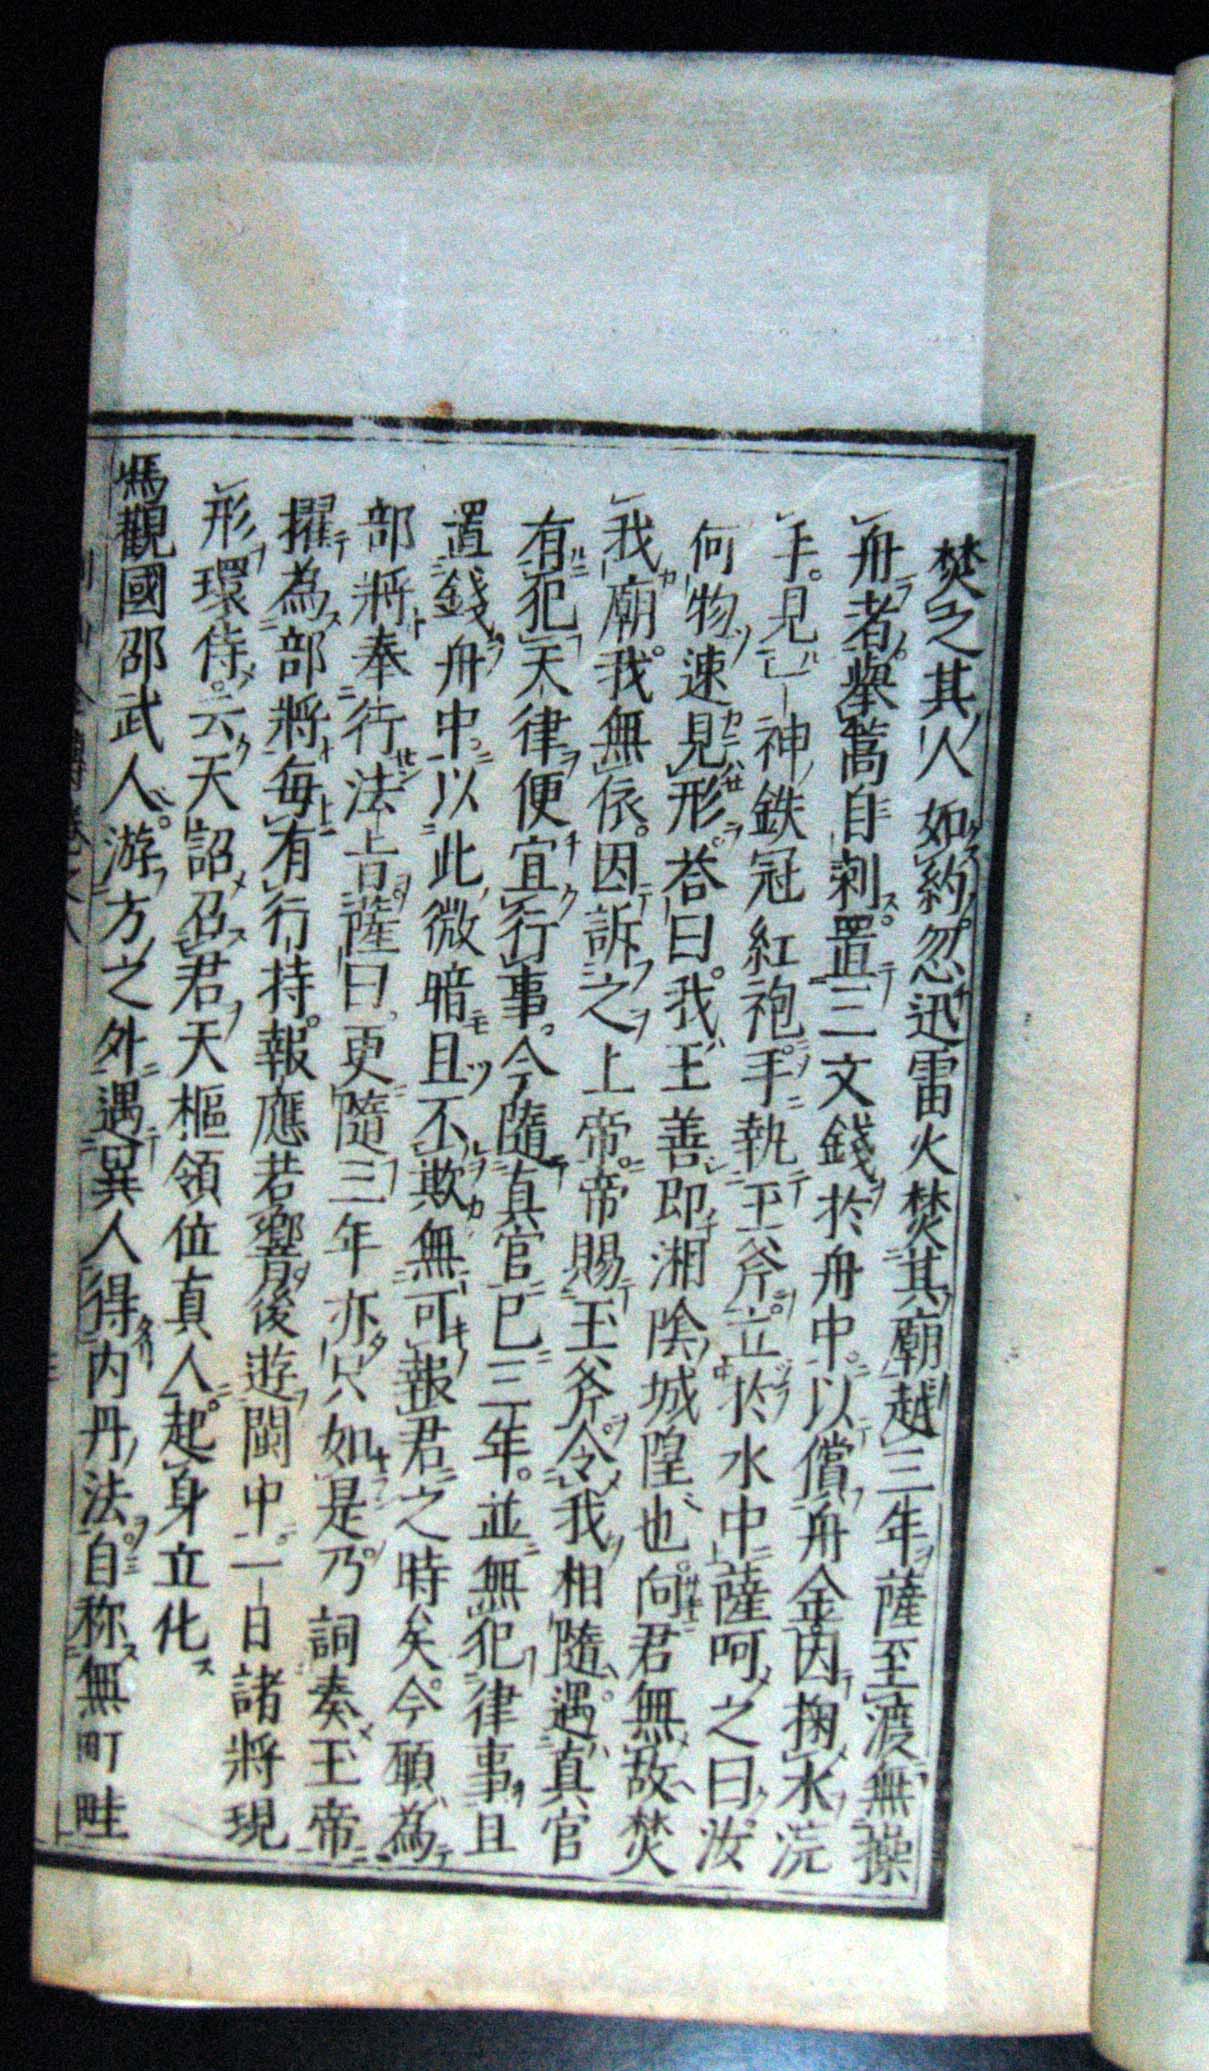 焚之其人如約忽迅雷火焚其廟越三年薩至渡無操
舟者舉蒿自刺置三文錢於舟中以償舟金因掬水浣
手見一神鉄冠紅袍手執玉斧立於水中薩呵之曰汝
何物速見形荅曰我王善即湘陰城隍也向君無故焚
我廟我無依因訴之上帝帝賜玉斧令我相隨遇真官
有犯天律便宜行事今隨真官已三年並無犯律事且
置錢舟中以此微暗且不欺無可報君之時矣今願為
部將奉行法旨薩曰更隨三年亦只如是乃詞奏玉帝
擢為部將每有行持報應若響後遊閩中一日諸將現
形環侍云天詔召君天樞領位真人起身立化
馮觀國邵武人游方之外遇異人得内丹法自称無町畦